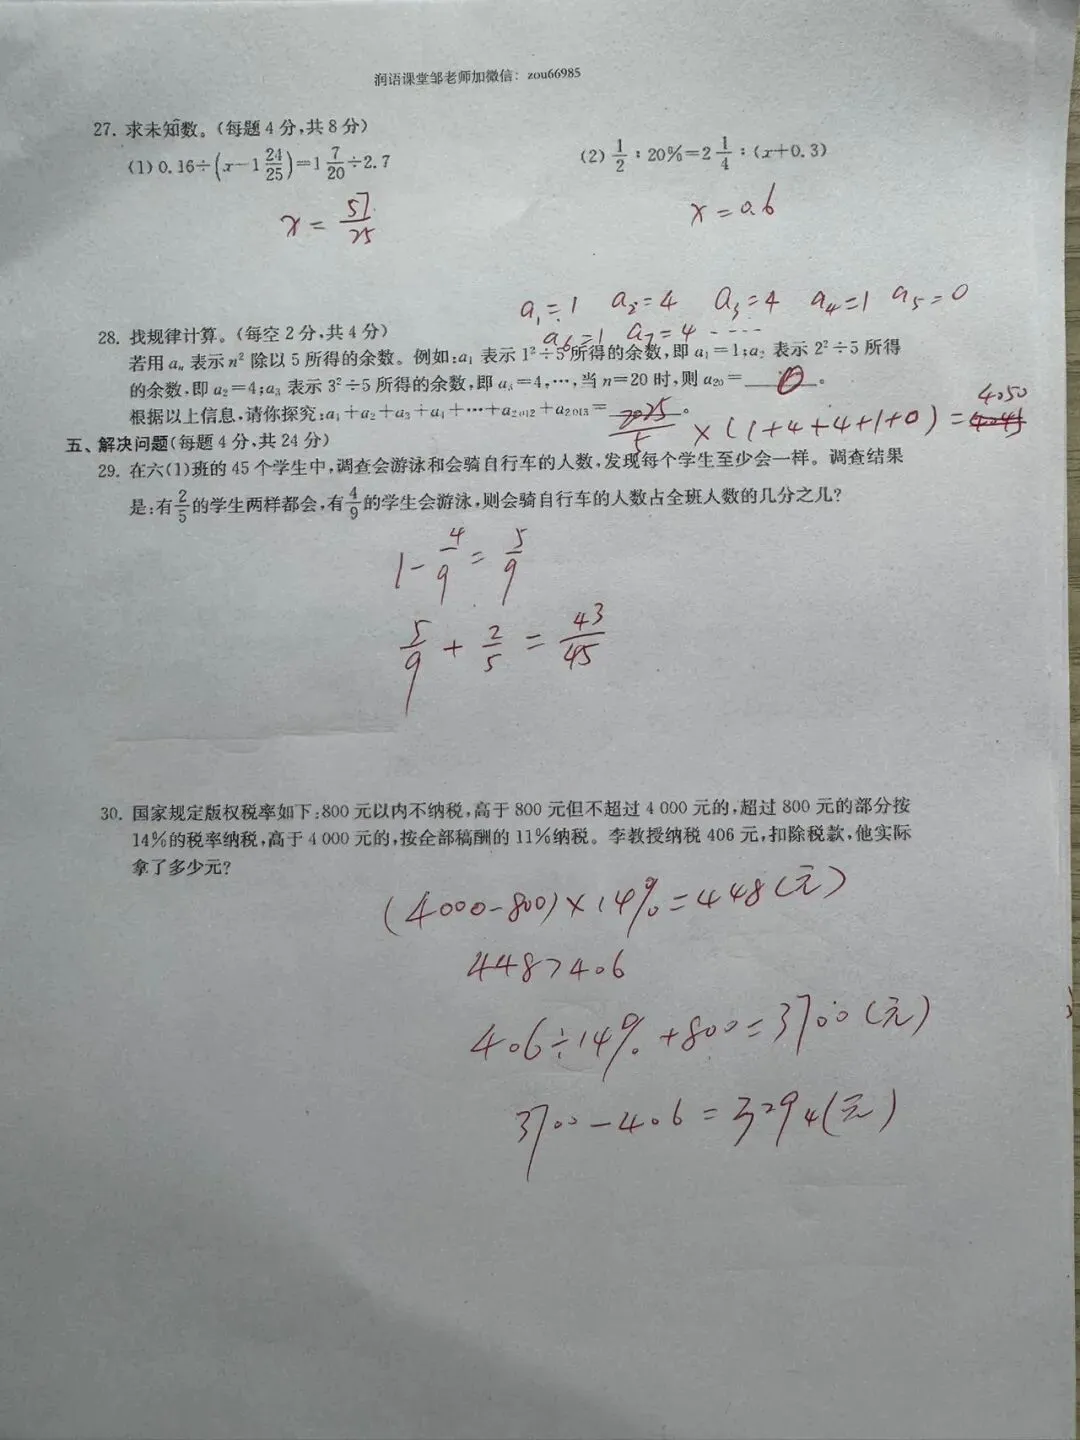 润语课堂邹老师加微信：zou66985
27. 求未知数。(每题 4 分,共 8 分)
(1) 0.16÷(x−1 24/25)=1 7/20÷2.7
(2) 1/2：20%=2 1/4：(x+0.3)
x = 57/25
x = 0.6
a₁=1 a₂=4 a₃=4 a₄=1 a₅=0
28. 找规律计算。(每空 2 分,共 4 分)
a₆=1 a₇=4 ----
若用 aₙ 表示 n² 除以 5 所得的余数。例如:a₁ 表示 1²÷5 所得的余数,即 a₁=1;a₂ 表示 2²÷5 所得
的余数,即 a₂=4;a₃ 表示 3²÷5 所得的余数,即 a₃=4,…,当 n=20 时,则 a₂₀= 0 。
根据以上信息,请你探究:a₁+a₂+a₃+a₄+…+a₂₀₁₂+a₂₀₁₃= 。
2025/5 ×(1+4+4+1+0)= 4050
五、解决问题(每题 4 分,共 24 分)
29. 在六(1)班的 45 个学生中,调查会游泳和会骑自行车的人数,发现每个学生至少会一样。调查结果
是:有2/5的学生两样都会,有4/9的学生会游泳,则会骑自行车的人数占全班人数的几分之几?
1−4/9=5/9
5/9+2/5=43/45
30. 国家规定版权税率如下:800 元以内不纳税,高于 800 元但不超过 4 000 元的,超过 800 元的部分按
14%的税率纳税,高于 4 000 元的,按全部稿酬的 11%纳税。李教授纳税 406 元,扣除税款,他实际
拿了多少元?
(4000−800)×14%=448(元)
448>406
406÷14%+800=3700(元)
3700−406=3294(元)